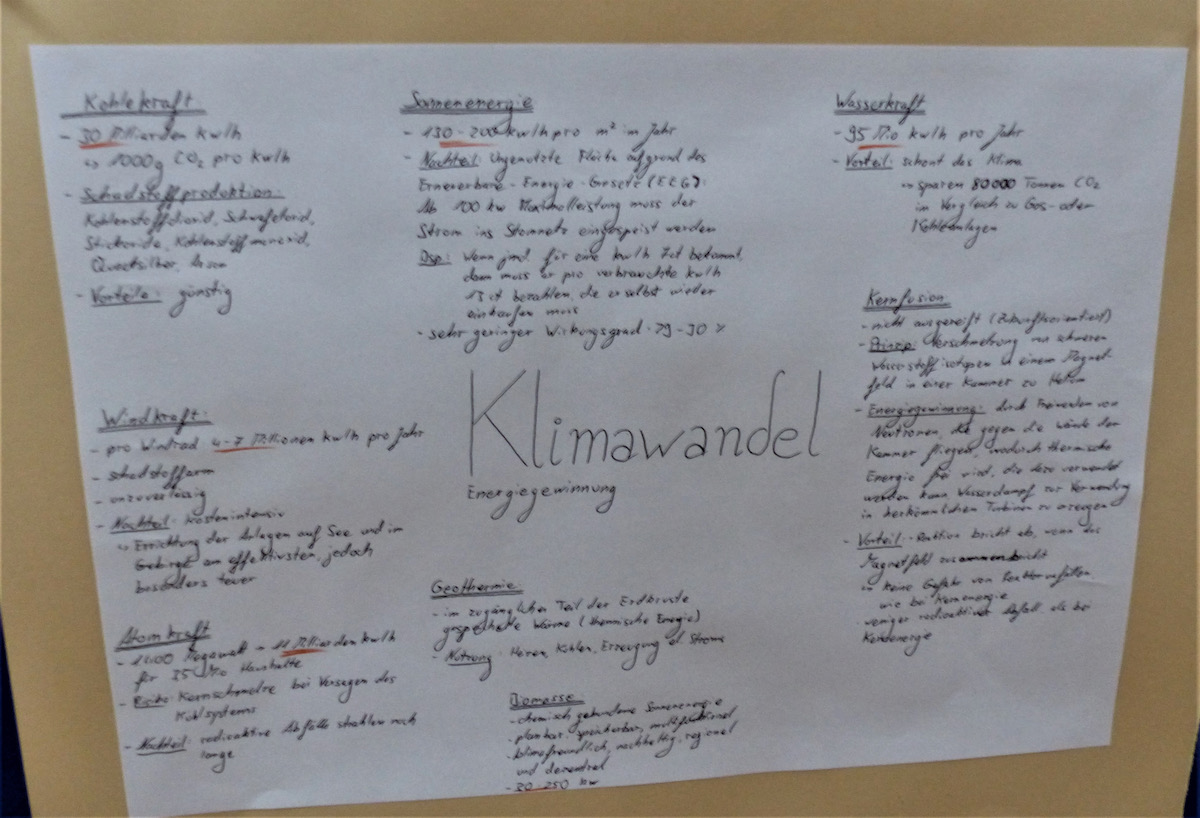 Kohlekraft
- 30 Milliarden kwlh
↳ 1000g CO₂ pro kwlh
- Schadstoffproduktion:
Kohlenstoffdioxid, Schwefeloxid,
Stickoxide, Kohlenstoffmonoxid,
Quecksilber, Arsen
- Vorteile: günstig
Sonnenenergie
- 130-200 kwlh pro m² im Jahr
- Nachteil: Ungenutzte Fläche aufgrund des
Erneuerbare-Energie-Gesetz (EEG):
Ab 100 kw Maximalleistung muss der
Strom ins Stomnetz eingespeist werden
Bsp: Wenn jmd. für eine kwlh 7ct bekommt,
dann muss er pro verbrauchte kwlh
13 ct bezahlen, die er selbst wieder
einkaufen muss
- sehr geringer Wirkungsgrad
Wasserkraft
- 95 Mio kwlh pro Jahr
- Vorteil: schont das Klima
↳ sparen 80000 Tonnen CO₂
im Vergleich zu Gas- oder
Kohleanlagen
Kernfusion
- nicht ausgereift (Zukunftsorientiert)
- Prinzip: Verschmelzung von schweren
Wasserstoffisotopen in einem Magnet-
feld in einer Kammer zu Helium
- Energiegewinnung: durch Freiwerden von
Neutronen, die gegen die Wände der
Kammer fliegen, wodurch thermische
Energie frei wird, die dazu verwendet
werden kann Wasserdampf zur Verwendung
in herkömmlichen Turbinen zu erzeugen
- Vorteil: - Reaktion bricht ab, wenn das
Magnetfeld zusammenbricht
↳ Keine Gefahr von Reaktorunfällen
wie bei Kernenergie
- weniger radioaktiven Abfall als bei
Kernenergie
Klimawandel
Energiegewinnung
Windkraft:
- pro Windrad 4-7 Millionen kwlh pro Jahr
- schadstoffarm
- unzuverlässig
- Nachteil: kostenintensiv
↳ Errichtung der Anlagen auf See und im
Gebirge am effektivsten, jedoch
besonders teuer
Atomkraft
- 1400 Megawatt = 11 Milliarden kwlh
für 3,5 Mio Haushalte
- Risiko: Kernschmelze bei Versagen des
Kühlsystems
- Nachteil: radioaktive Abfälle strahlen noch
lange
Geothermie
- im zugänglichen Teil der Erdkruste
gespeicherte Wärme (thermische Energie)
- Nutzung: Heizen, Kühlen, Erzeugung el. Stroms
Biomasse:
- chemisch gebundene Sonnenenergie
- planbar, speicherbar, multifunktional
- klimafreundlich, nachhaltig, regional
und dezentral
- 30-250 kw